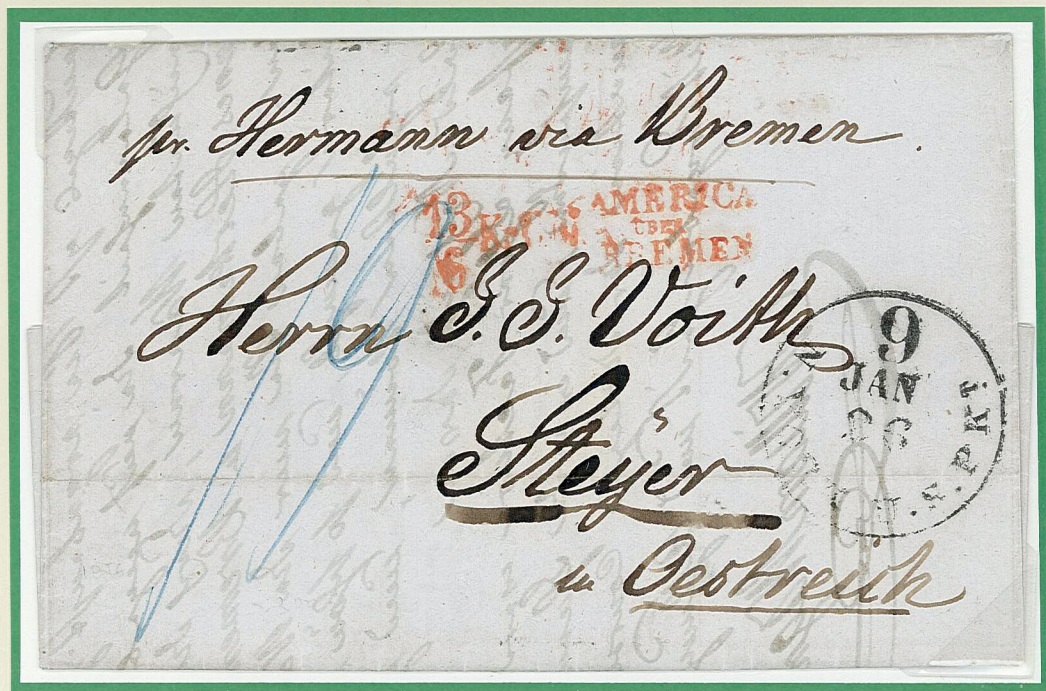 pr. Hermann via Bremen.
13
6
AMERICA
ÜBER
BREMEN
Herrn J. J. Voith
Steÿer
in Oestreich
19
9
JAN
26
U.S. PKT.